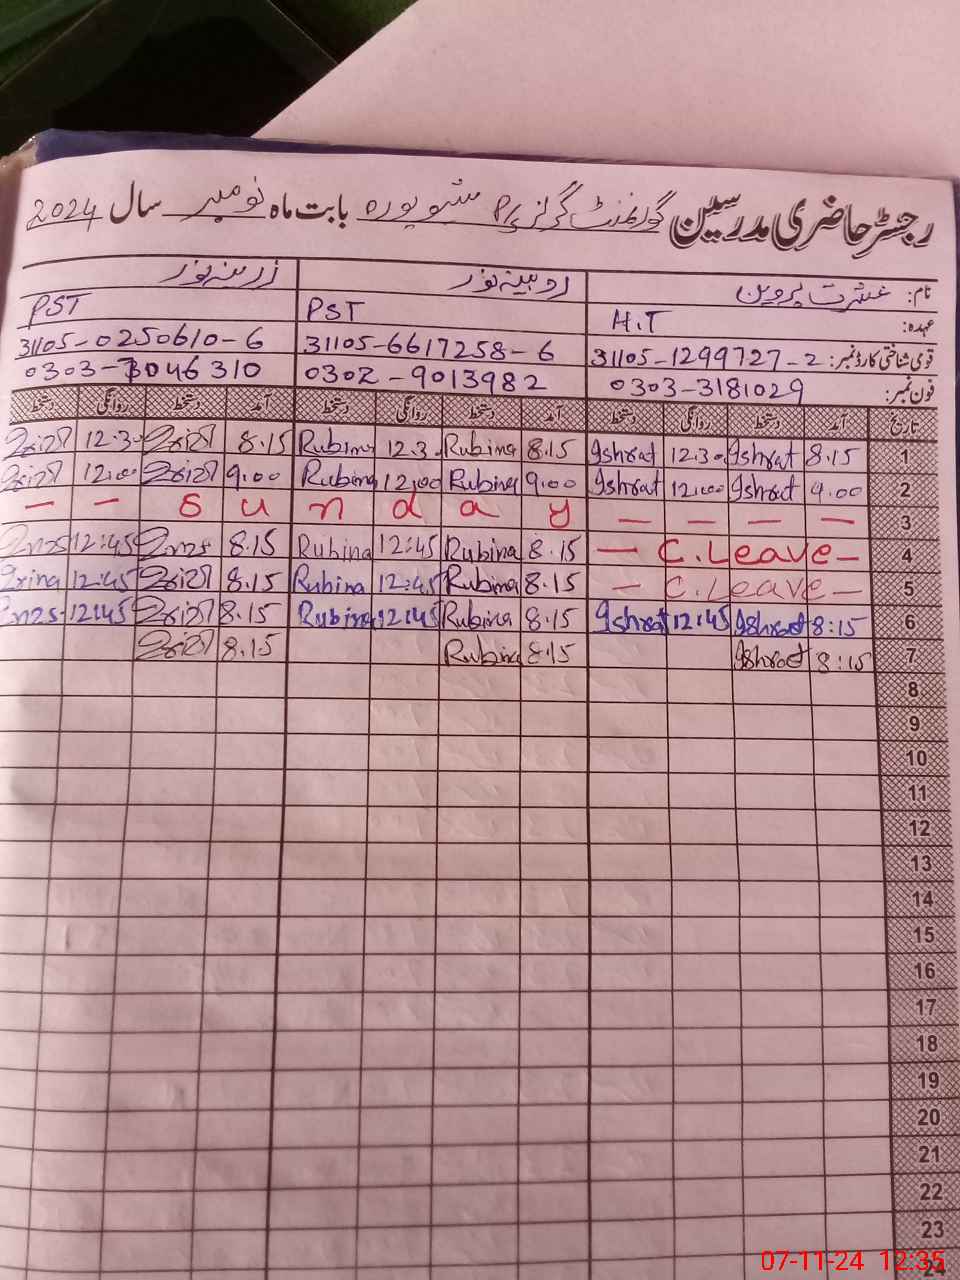 رجسٹر حاضری مدرسین گورنمنٹ گرلز P/S بابت ماہ نومبر سال 2024
نام: عشرت پروین روبینہ نور زرینہ نور
عہدہ: H.T PST PST
قومی شناختی کارڈ نمبر: 31105-1299727-2 31105-6617258-6 31105-0250610-6
فون نمبر: 0303-3181029 0302-9013982 0303-3046310
تاریخ آمد دستخط روانگی دستخط آمد دستخط روانگی دستخط آمد دستخط روانگی دستخط
1 8.15 Ishrat 12.30 Ishrat 8.15 Rubina 12.30 Rubina 8.15 12.3
2 9.00 Ishrat 12.00 Ishrat 9.00 Rubina 12.00 Rubina 9.00 12.00
— — S u n d a y — — — — 3
4 — C.Leave — 8.15 Rubina 12:45 Rubina 8.15 12:45
5 — C.Leave — 8.15 Rubina 12:45 Rubina 8.15 12:45
6 8:15 Ishrat 12:45 Ishrat 8.15 Rubina 12:45 Rubina 8.15 12:45
7 8:15 Ishrat 8.15 Rubina 8.15
8
9
10
11
12
13
14
15
16
17
18
19
20
21
22
23
24
07-11-24 12:35